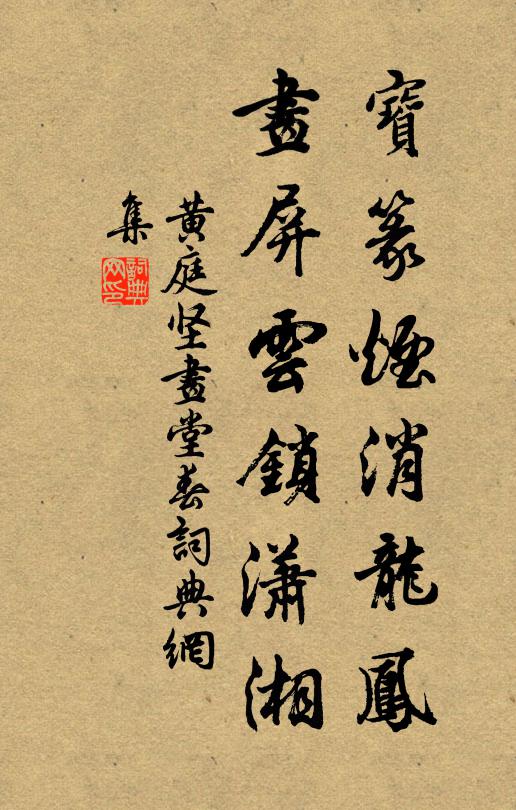 寶篆煙消龍鳳
畫屏雲鎖瀟湘
黃庭坚畫堂春詞典網
集
詞典
网印